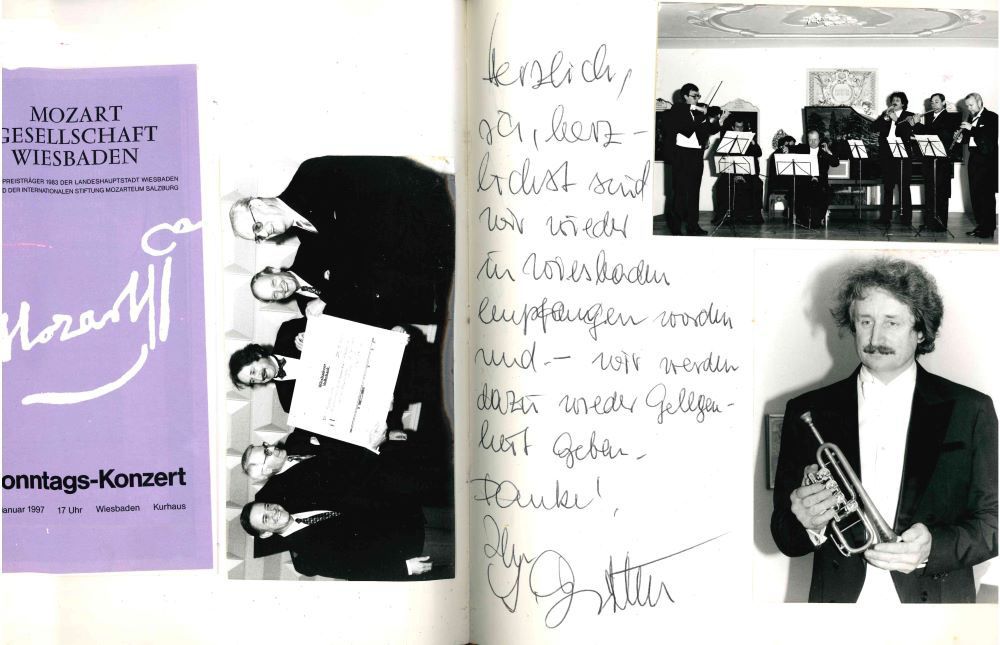 MOZART
GESELLSCHAFT
WIESBADEN
PREISTRÄGER 1983 DER LANDESHAUPTSTADT WIESBADEN
D DER INTERNATIONALEN STIFTUNG MOZARTEUM SALZBURG
Mozart
onntags-Konzert
anuar 1997 17 Uhr Wiesbaden Kurhaus
Herzlich,
ja, herz-
lichst sind
wir wieder
in Wiesbaden
empfangen worden
und – wir werden
dazu wieder Gelegen-
heit geben –
Danke!